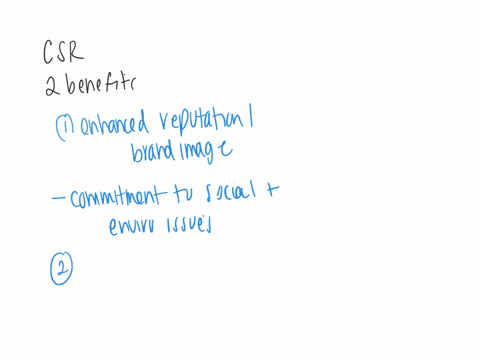 CSR
2 benefits
(1) enhanced reputation /
brand image
- commitment to social +
enviro issues
②